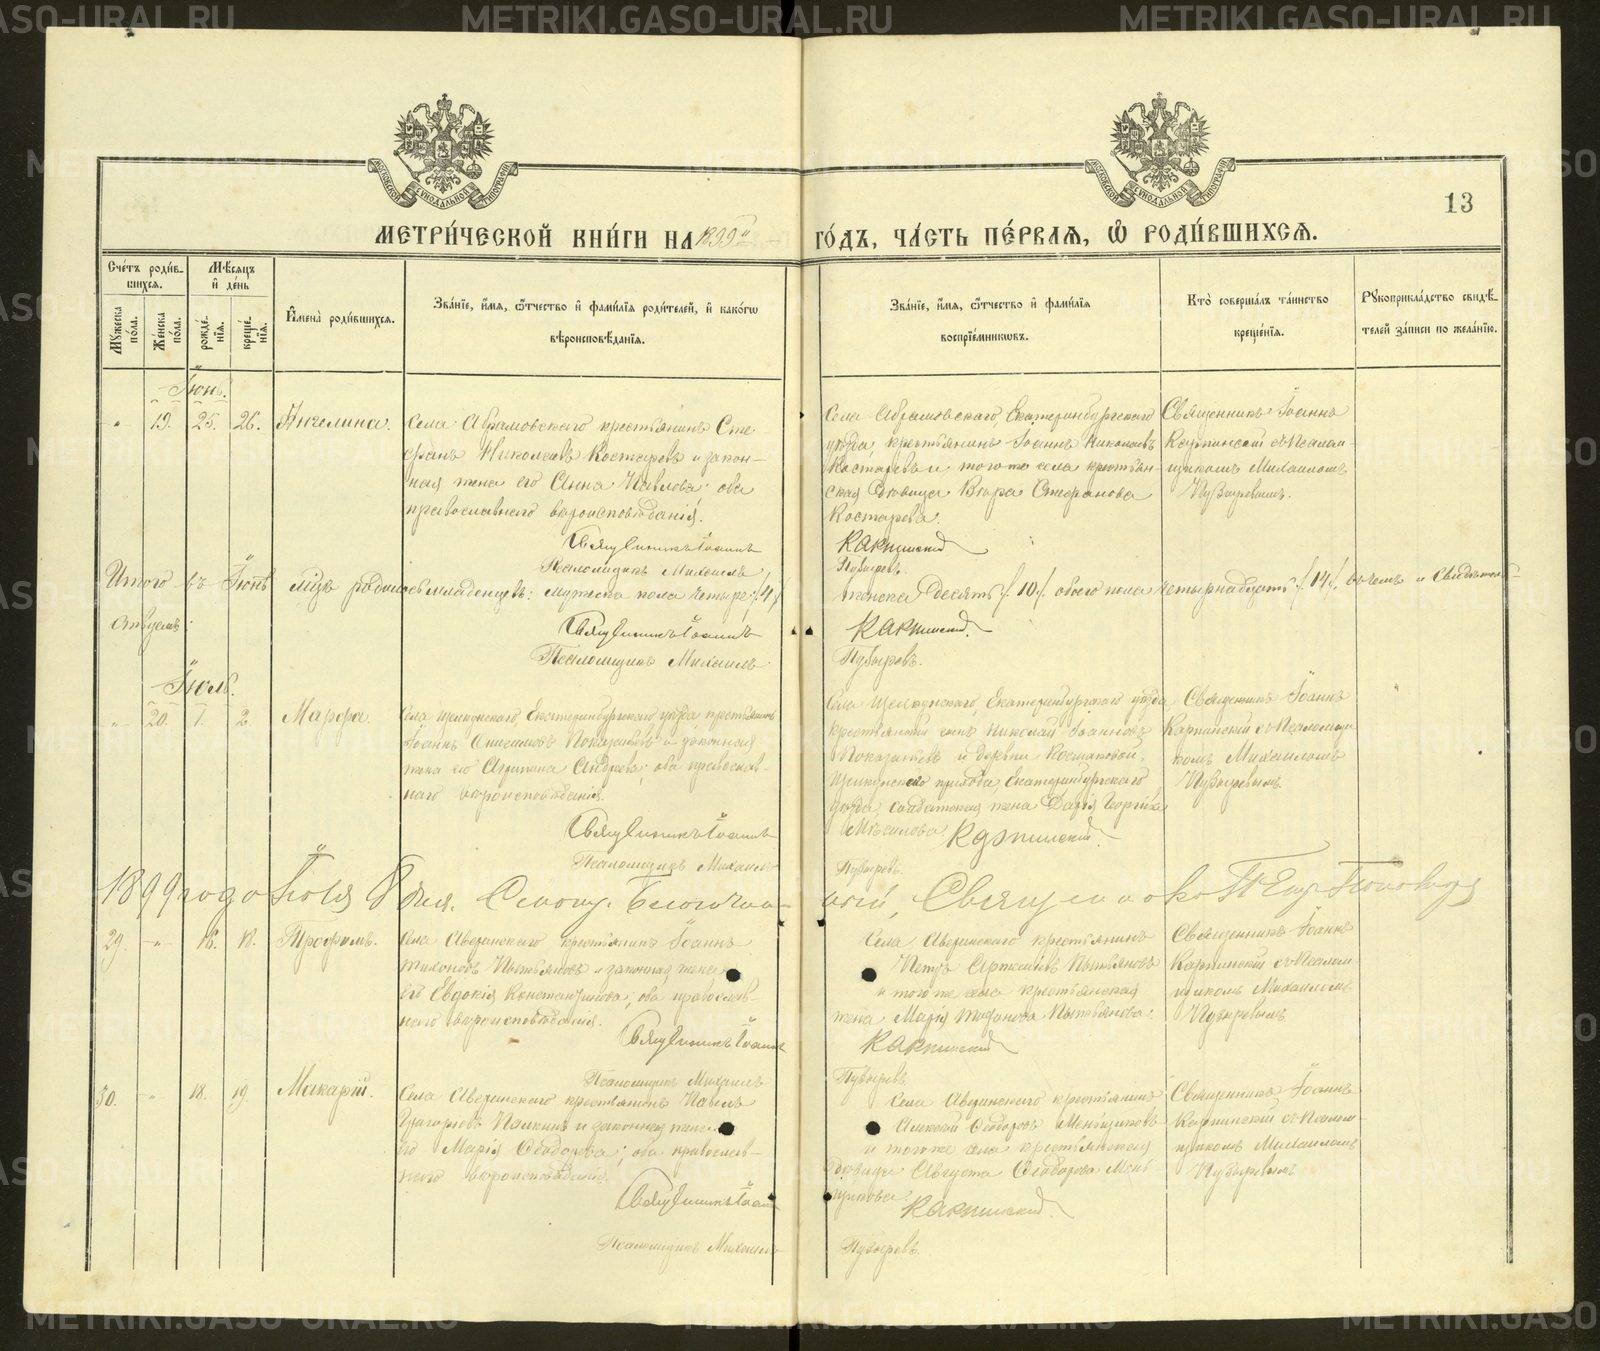 METRIKI.GASO-URAL.RU
13
МЕТРИ́ЧЕСКОЙ КНИ́ГИ НА 1899й ГО́ДЪ, ЧА́СТЬ ПЕ́РВАЯ, Ѡ РОДИ́ВШИХСЯ.
Сче́тъ роди́вшихся.
Мꙋ́жеска по́ла.
Же́нска по́ла.
Мѣ́сяцъ и҆ де́нь
рожде́нїя.
креще́нїя.
И҆мена̀ роди́вшихся.
Зва́нїе, и҆́мя, ѻ҆́тчество и҆ фами́лїя роди́телей, и҆ како́гѡ вѣроисповѣ́данїя.
Зва́нїе, и҆́мя, ѻ҆́тчество и҆ фами́лїя воспрїе́мникѡвъ.
Кто̀ соверша́лъ та́инство креще́нїя.
Рꙋкоприкла́дство свидѣ́телей за́писи по жела́нїю.
Іюнь.
" 19. 25. 26. Ангелина.
Села Абрамовскаго крестьянинъ Сте-
фанъ Николаевъ Костаревъ и закон-
ная жена его Анна Павлова; оба
православнаго вѣроисповѣданія.
Священникъ Іоаннъ
Псаломщикъ Михаилъ
Села Абрамовскаго, Екатеринбургскаго
уѣзда, крестьянинъ Іоаннъ Николаевъ
Костаревъ и того же села крестьян-
ская дѣвица Вѣра Стефанова
Костарева.
Карпинскій
Пузыревъ.
Священникъ Іоаннъ
Карпинскій съ псалом-
щикомъ Михаиломъ
Пузыревымъ.
Итого въ Іюнѣ мцѣ родилось младенцевъ: мужеска пола четыре /4/ женска десять /10/. обоего пола четырнадцать /14/. въ чемъ и свидѣтель-
ствуемъ:
Священникъ Іоаннъ Карпинскій.
Псаломщикъ Михаилъ Пузыревъ.
Іюль.
" 20. 1. 2. Марфа.
Села Щелкунскаго, Екатеринбургскаго уѣзда, крестьянинъ
Іоаннъ Анисимовъ Показаньевъ и законная
жена его Агрипина Андреева; оба православ-
наго вѣроисповѣданія.
Священникъ Іоаннъ
Псаломщикъ Михаилъ
Села Щелкунскаго, Екатеринбургскаго уѣзда
крестьянскій сынъ Николай Іоанновъ
и деревни
Щелкунскаго прихода, Екатеринбургскаго
уѣзда, солдатская жена Дарія Георгіева
Карпинскій.
Пузыревъ.
Священникъ Іоаннъ
Карпинскій съ псаломщи-
комъ Михаиломъ
Пузыревымъ.
1899 года Іюля 8 дня. Священникъ
29. " 16. 18. Трофимъ.
Села Аверинскаго крестьянинъ Іоаннъ
Тихоновъ и законная жена
его Евдокія Константинова; оба православ-
наго вѣроисповѣданія.
Священникъ Іоаннъ
Псаломщикъ Михаилъ
Села Аверинскаго крестьянинъ
Петръ
и того же села крестьянская
жена Марія
Карпинскій
Пузыревъ.
Священникъ Іоаннъ
Карпинскій съ псалом-
щикомъ Михаиломъ
Пузыревымъ.
30. " 18. 19. Макарій.
Села Аверинскаго крестьянинъ Павелъ
Григорьевъ и законная жена
его Марія Ѳеодорова; оба православ-
наго вѣроисповѣданія.
Священникъ Іоаннъ
Псаломщикъ Михаилъ
Села Аверинскаго крестьянинъ
Алексѣй Ѳеодоровъ Меньщиковъ
и того же села крестьянская
дѣвица Августа Ѳеодорова Мень-
щикова.
Карпинскій.
Пузыревъ.
Священникъ Іоаннъ
Карпинскій съ псалом-
щикомъ Михаиломъ
Пузыревымъ